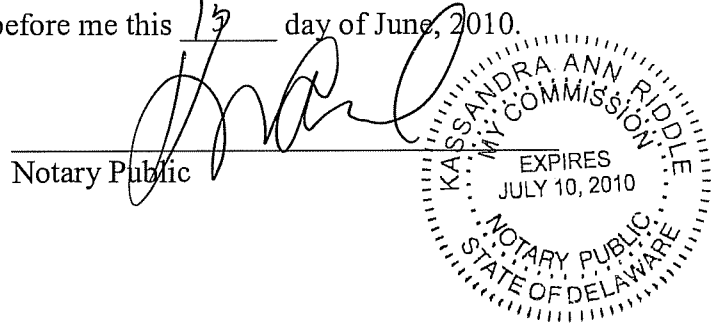 before me this 15 day of June, 2010.
Notary Public
KASSANDRA ANN RIDDLE
MY COMMISSION
EXPIRES
JULY 10, 2010
NOTARY PUBLIC
STATE OF DELAWARE